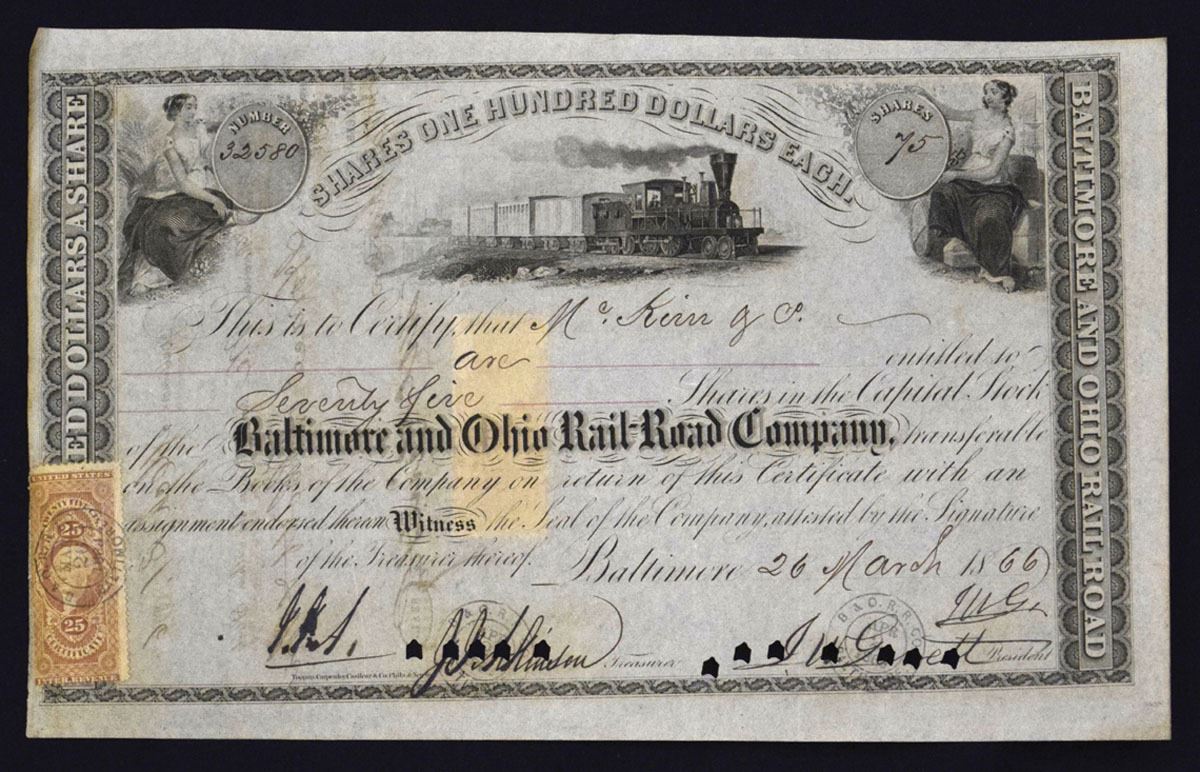 SHARES ONE HUNDRED DOLLARS EACH.
NUMBER
32580
SHARES
75
ED DOLLARS A SHARE
BALTIMORE AND OHIO RAIL ROAD
This is to Certify, that Mc Kim & Co.
are entitled to
Seventy five Shares in the Capital Stock
of the Baltimore and Ohio Rail-Road Company, transferable
on the Books of the Company on return of this Certificate with an
assignment endorsed thereon Witness the Seal of the Company, attested by the Signature
of the Treasurer thereof. Baltimore 26 March 1866
Treasurer
J W Garrett President
Toppan, Carpenter, Casilear & Co. Phila. &
UNITED STATES
25
25
CERTIFICATE
INTER. REVENUE
B & O. R. R. Co